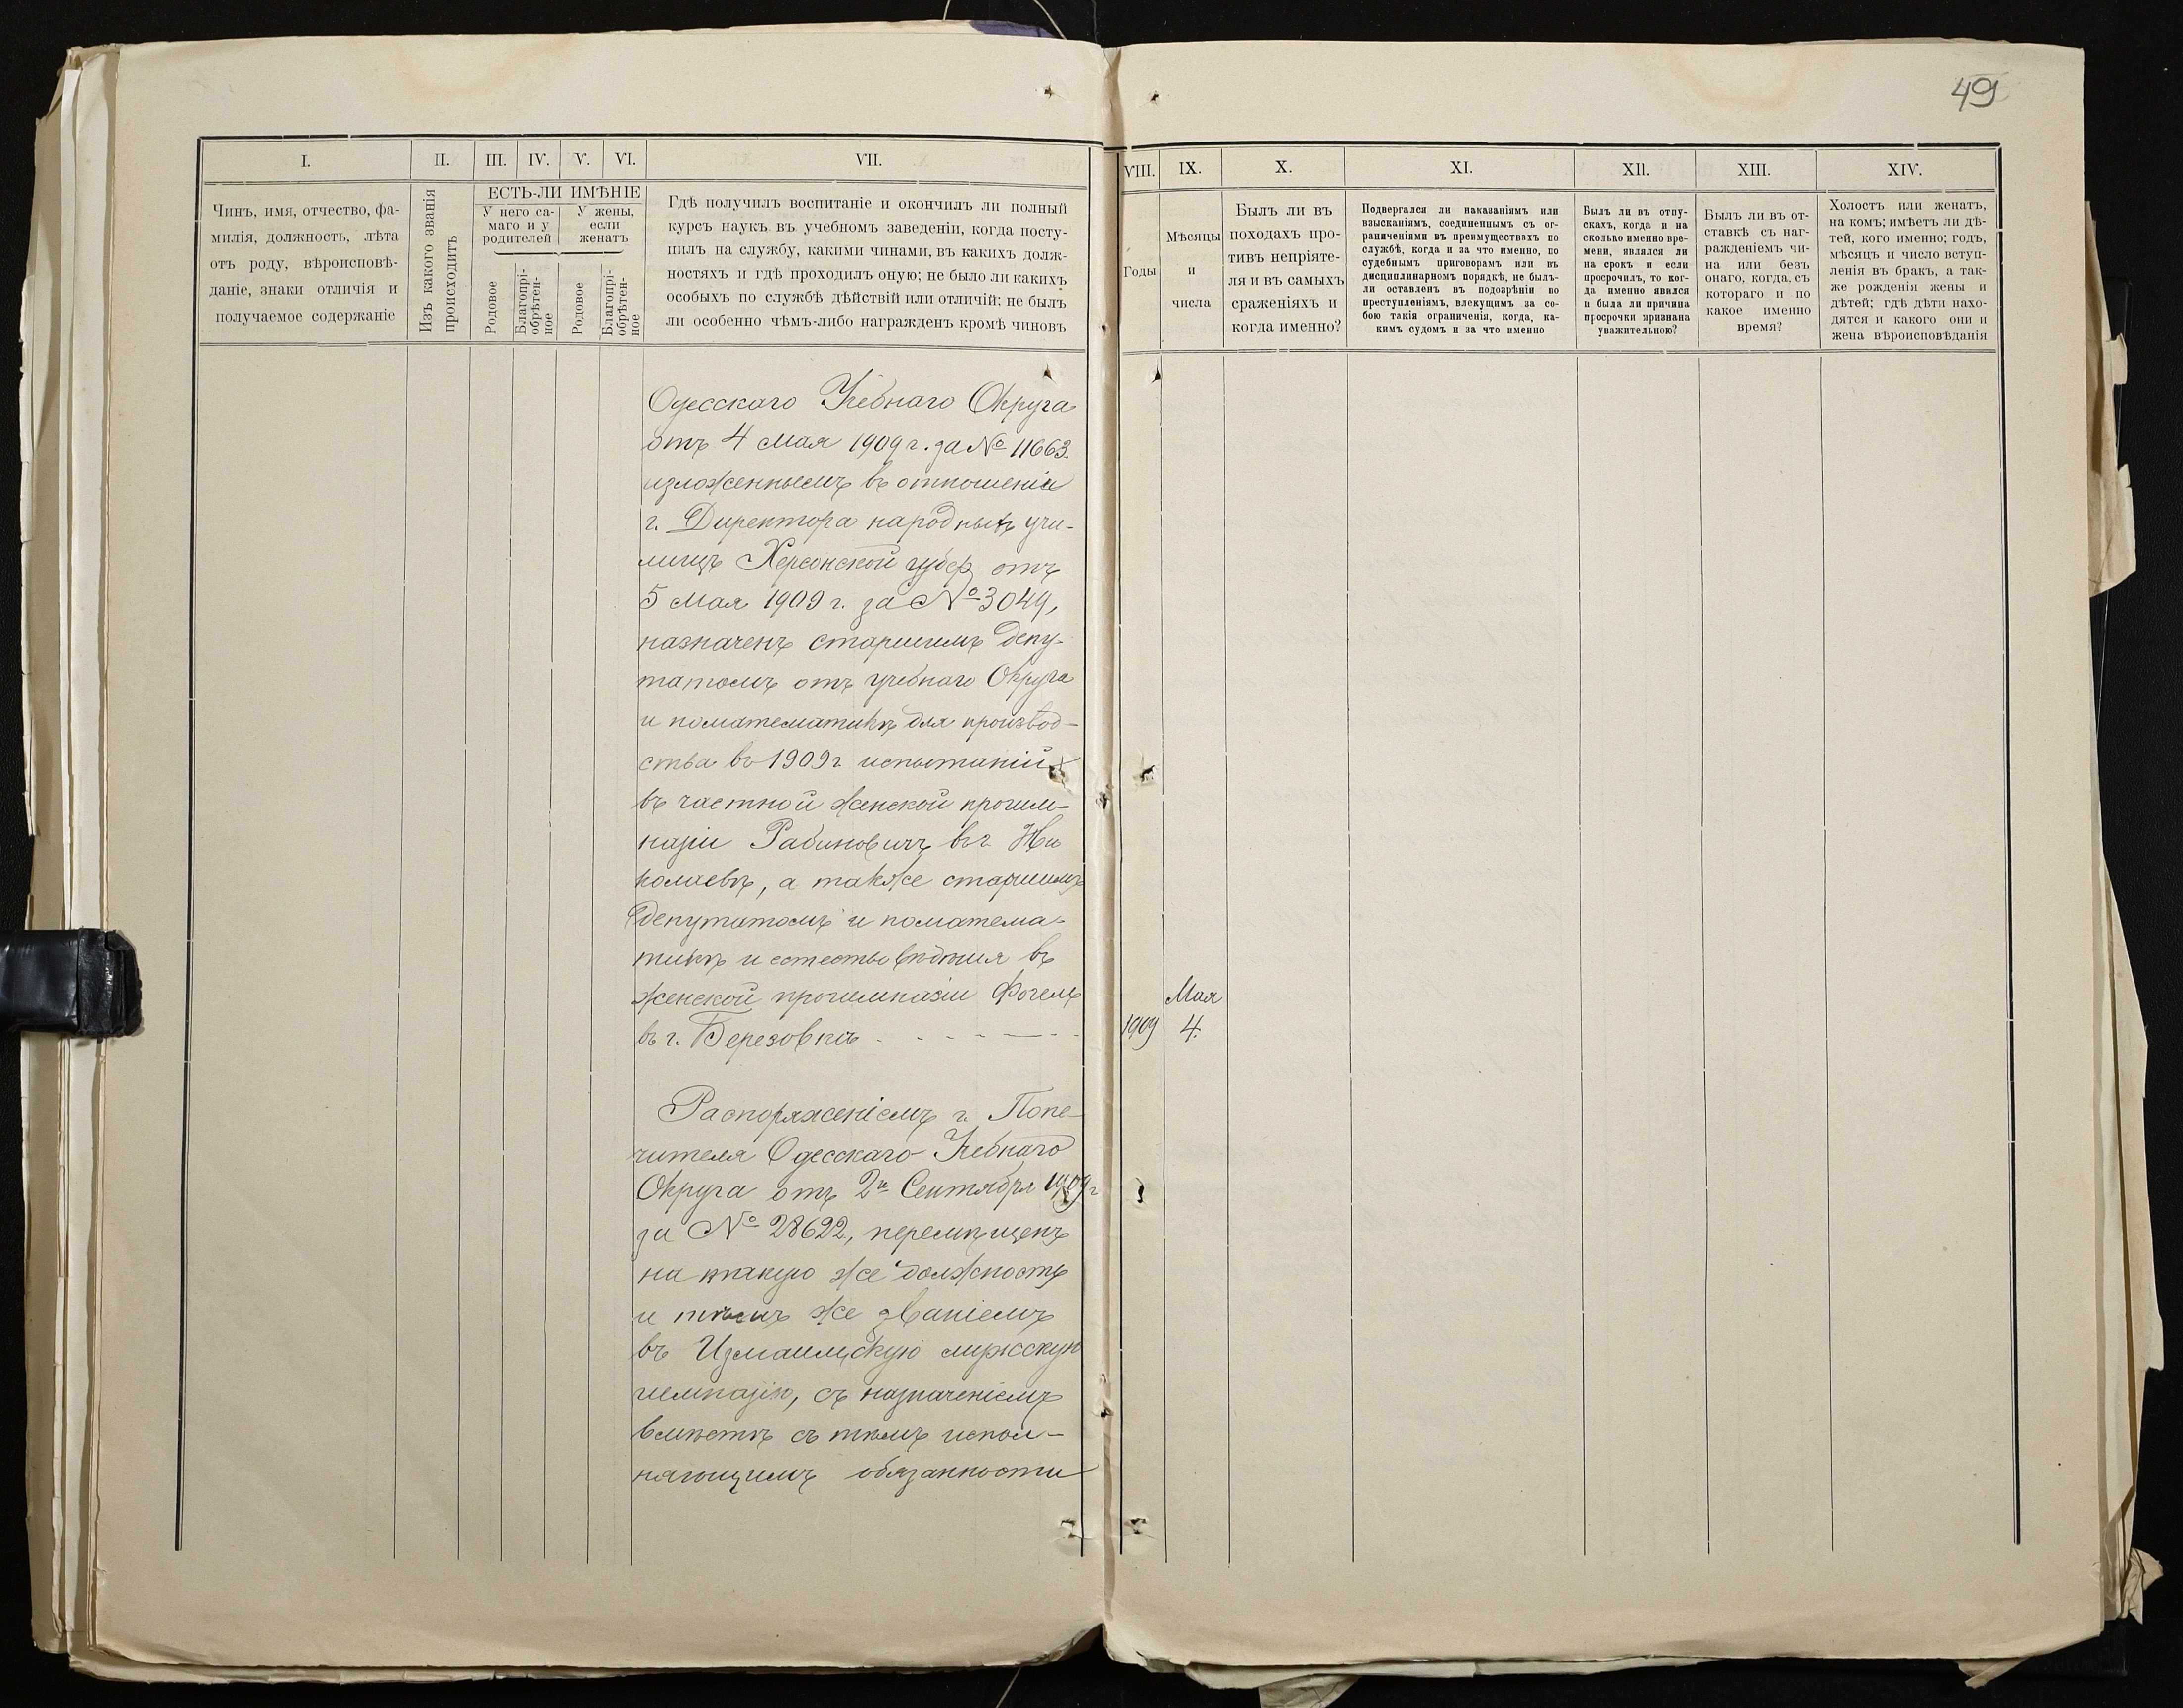 49
I. II. III. IV. V. VI. VII.
Чинъ, имя, отчество, фа-
милія, должность, лѣта
отъ роду, вѣроисповѣ-
даніе, знаки отличія и
получаемое содержаніе
Изъ какого званія
происходитъ
ЕСТЬ-ЛИ ИМѢНІЕ
У него са-
маго и у
родителей
У жены,
если
женатъ
Родовое
Благопрі-
обрѣтен-
ное
Родовое
Благопрі-
обрѣтен-
ное
Гдѣ получилъ воспитаніе и окончилъ ли полный
курсъ наукъ въ учебномъ заведеніи, когда посту-
пилъ на службу, какими чинами, въ какихъ долж-
ностяхъ и гдѣ проходилъ оную; не было ли какихъ
особыхъ по службѣ дѣйствій или отличій; не былъ
ли особенно чѣмъ-либо награжденъ кромѣ чиновъ
VIII. IX. X. XI. XII. XIII. XIV.
Годы
Мѣсяцы
и
числа
Былъ ли въ
походахъ про-
тивъ непріяте-
ля и въ самыхъ
сраженіяхъ и
когда именно?
Подвергался ли наказаніямъ или
взысканіямъ, соединеннымъ съ ог-
раниченіями въ преимуществахъ по
службѣ, когда и за что именно, по
судебнымъ приговорамъ или въ
дисциплинарномъ порядкѣ, не былъ-
ли оставленъ въ подозрѣніи по
преступленіямъ, влекущимъ за со-
бою такія ограниченія, когда, ка-
кимъ судомъ и за что именно
Былъ ли въ отпу-
скахъ, когда и на
сколько именно вре-
мени, являлся ли
на срокъ и если
просрочилъ, то ког-
да именно явился
и была ли причина
просрочки признана
уважительною?
Былъ ли въ от-
ставкѣ съ наг-
ражденіемъ чи-
на или безъ
онаго, когда, съ
котораго и по
какое именно
время?
Холостъ или женатъ,
на комъ; имѣетъ ли дѣ-
тей, кого именно; годъ,
мѣсяцъ и число вступ-
ленія въ бракъ, а так-
же рожденія жены и
дѣтей; гдѣ дѣти нахо-
дятся и какого они и
жена вѣроисповѣданія
Одесскаго Учебнаго Округа
отъ 4 Мая 1909 г. за № 11663.
изложеннымъ въ отношеніи
г. Директора народныхъ учи-
лищъ Херсонской губер. отъ
5 Мая 1909 г. за № 3049,
назначенъ старшимъ депу-
татомъ отъ учебнаго Округа
и по математикѣ для производ-
ства въ 1909 г испытаній
въ частной женской прогим-
назіи Рабиновичъ въ г. Ни
колаевѣ, а также старшимъ
депутатомъ и по матема-
тикѣ и естествовѣдѣнія въ
женской прогимназіи Фогель
въ г. Березовкѣ
Мая
1909 4.
Распоряженіемъ г. Попе-
чителя Одесскаго Учебнаго
Округа отъ 2го Сентября 1909 г
за № 28622, перемѣщенъ
на такую же должность
и тѣмъ же званіемъ
въ Измаильскую мужскую
гимназію, съ назначеніемъ
вмѣстѣ съ тѣмъ испол-
няющимъ обязанности